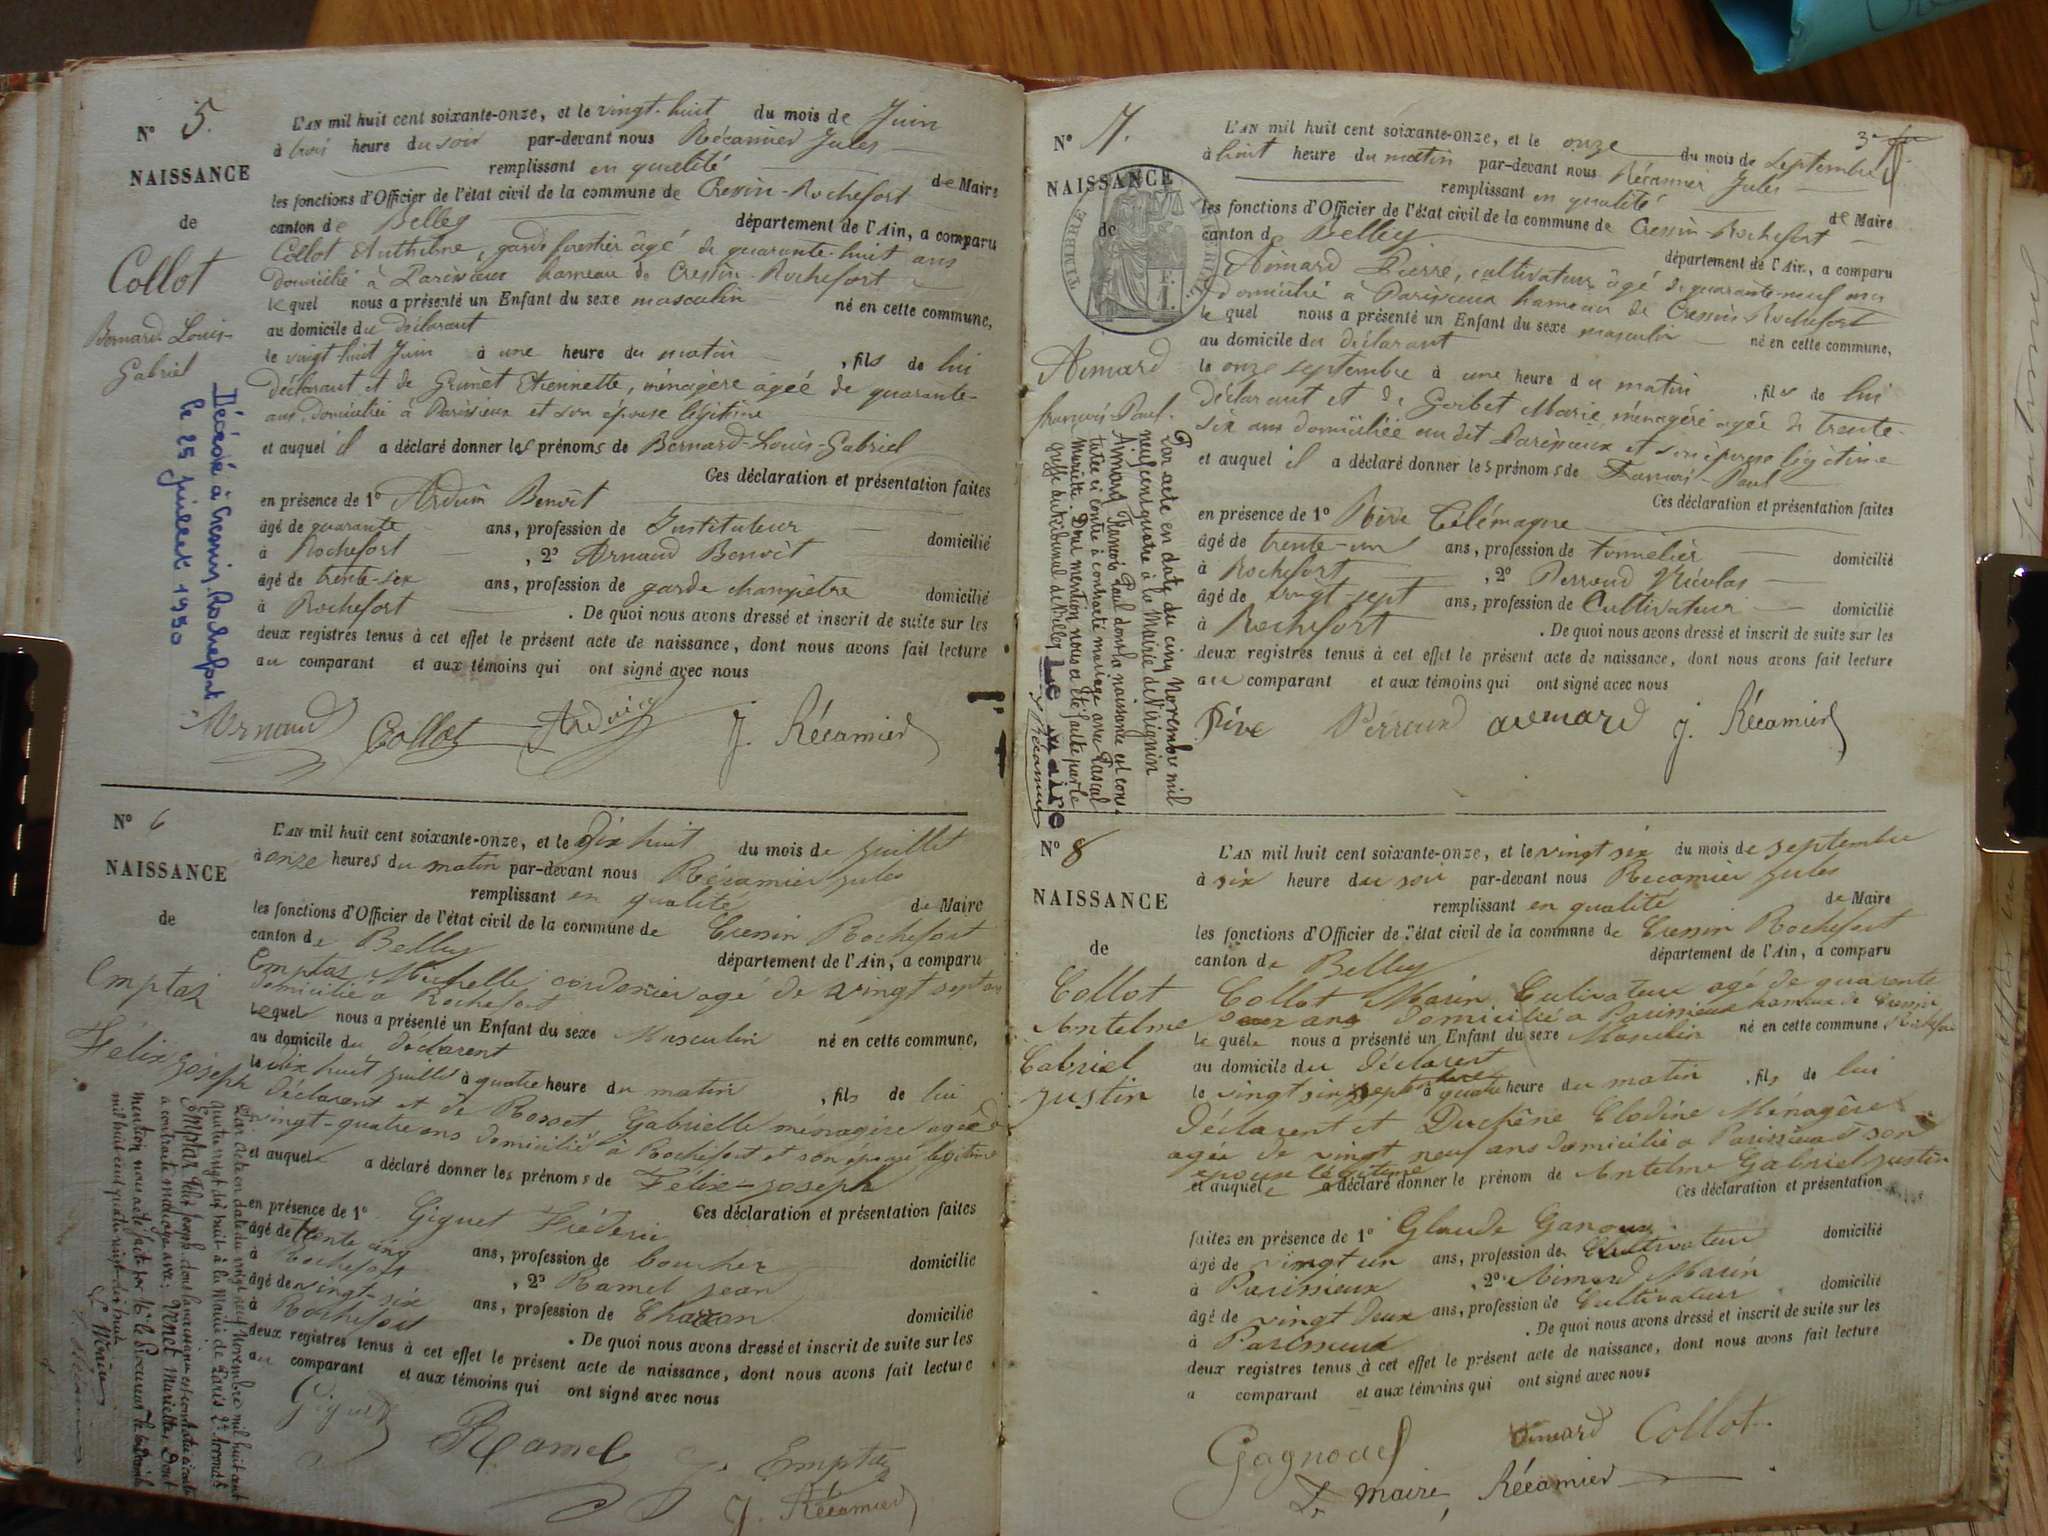 N° 5.
NAISSANCE
de
Collot
Bernard-Louis-
Gabriel
Décédé à Cressin-Rochefort
le 25 juillet 1950
L'AN mil huit cent soixante-onze, et le vingt-huit du mois de Juin
à trois heure du soir par-devant nous Récamier Jules
remplissant en qualité de Maire
les fonctions d'Officier de l'état civil de la commune de Cressin-Rochefort
canton de Belley département de l'Ain, a comparu
Collot Anthelme, garde forestier âgé de quarante-huit ans
domicilié à Parissieux hameau de Cressin-Rochefort
lequel nous a présenté un Enfant du sexe masculin né en cette commune,
au domicile du déclarant
le vingt-huit Juin à une heure du matin, fils de lui
déclarant et de Grinet Etiennette, ménagère âgée de quarante-
ans domiciliée à Parissieux et son épouse légitime
et auquel il a déclaré donner les prénoms de Bernard-Louis-Gabriel
Ces déclaration et présentation faites
en présence de 1° Arduin Benoît
âgé de quarante ans, profession de Instituteur domicilié
à Rochefort, 2° Arnaud Benoît
âgé de trente-six ans, profession de garde champêtre domicilié
à Rochefort. De quoi nous avons dressé et inscrit de suite sur les
deux registres tenus à cet effet le présent acte de naissance, dont nous avons fait lecture
au comparant et aux témoins qui ont signé avec nous
Arnaud Collot Arduin J. Récamier
N° 6
NAISSANCE
de
Emptaz
Félix Joseph
Par acte en date du vingt neuf Novembre mil huit cent
quatre vingt dix huit à la Mairie de Paris 2e Arrondt
Emptaz Félix Joseph dont la naissance est constatée ci contre
a contracté mariage avec Venet Mariette, Dont
mention nous a été faite par M. le Procureur
mil huit cent quatre vingt dix huit
L'AN mil huit cent soixante-onze, et le dix huit du mois de juillet
à onze heures du matin par-devant nous Récamier jules
remplissant en qualité de Maire
les fonctions d'Officier de l'état civil de la commune de Cressin Rochefort
canton de Belley département de l'Ain, a comparu
Emptaz Michelle cordonier agé de vingt sept ans
domicilié a Rochefort
lequel nous a présenté un Enfant du sexe Masculin né en cette commune,
au domicile du declarent
le dix huit juillet à quatre heure du matin, fils de lui
déclarent et de Rosset Gabrielle menagère agée de
vingt-quatre ans domicilié à Rochefort et son épouse légitime
et auquel a déclaré donner les prénoms de Félix-joseph
Ces déclaration et présentation faites
en présence de 1° Giguet Fréderic
âgé de trente cinq ans, profession de boucher domicilié
à Rochefort, 2° Ramel jean
âgé de vingt-six ans, profession de Charron domicilié
à Rochefort. De quoi nous avons dressé et inscrit de suite sur les
deux registres tenus à cet effet le présent acte de naissance, dont nous avons fait lecture
au comparant et aux témoins qui ont signé avec nous
Giguet Ramel Emptaz
J. Récamier
3e
N° 7.
NAISSANCE
de
TIMBRE IMPERIAL
Aimard
françois-Paul.
Par acte en date du cinq Novembre mil
neuf cent quatre à la Mairie de Virignin
Aimard François Paul dont la naissance est cons-
tatée ci contre à contracté mariage avec Pascal
Mariette. Dont mention nous a été faite par le
greffe du tribunal de Belley Le Maire
Récamier
L'AN mil huit cent soixante-onze, et le onze du mois de Septembre
à huit heure du matin par-devant nous Récamier Jules
remplissant en qualité de Maire
les fonctions d'Officier de l'état civil de la commune de Cressin-Rochefort
canton de Belley département de l'Ain, a comparu
Aimard Pierre, cultivateur âgé de quarante-neuf ans
domicilié à Parissieux hameau de Cressin-Rochefort
lequel nous a présenté un Enfant du sexe masculin né en cette commune,
au domicile du déclarant
le onze septembre à une heure du matin, fils de lui
déclarant et de Gorbet Marie, ménagère agée de trente-
six ans domiciliée au dit Parissieux et son épouse légitime
et auquel il a déclaré donner les prénoms de Francois-Paul
Ces déclaration et présentation faites
en présence de 1° Rive Télémaque
âgé de trente-un ans, profession de tonnelier domicilié
à Rochefort, 2° Perroud Nicolas
âgé de vingt-sept ans, profession de Cultivateur domicilié
à Rochefort. De quoi nous avons dressé et inscrit de suite sur les
deux registres tenus à cet effet le présent acte de naissance, dont nous avons fait lecture
au comparant et aux témoins qui ont signé avec nous
Rive Perroud aemard J. Récamier
N° 8
NAISSANCE
de
Collot
Antelme
Gabriel
Justin
L'AN mil huit cent soixante-onze, et le vingt six du mois de septembre
à six heure du soir par-devant nous Recamier jules
remplissant en qualité de Maire
les fonctions d'Officier de l'état civil de la commune de Cressin Rochefort
canton de Belley département de l'Ain, a comparu
Collot Marin Cultivateur agé de quarente
deux ans domicilié a Parissieux hameau de Cressin
lequel nous a présenté un Enfant du sexe Masculin né en cette commune Rochefort
au domicile du Déclarent
le vingt six septembre à quatre heure du matin, fils de lui
Déclarent et Duchêne Clodine Ménagère
agée de vingt neuf ans domicilié a Parissieux et son
épouse légitime
et auquel a déclaré donner le prénom de Antelme Gabriel justin
Ces déclaration et présentation
faites en présence de 1° Glaude Ganoux domicilié
âgé de vingt un ans, profession de Cultivateur
à Parissieux, 2° Aimard Marin domicilié
âgé de vingt deux ans, profession de Cultivateur
à Parissieux. De quoi nous avons dressé et inscrit de suite sur les
deux registres tenus à cet effet le présent acte de naissance, dont nous avons fait lecture
a comparant et aux témoins qui ont signé avec nous
Gagnoud Aimard Collot
Le Maire, Récamier